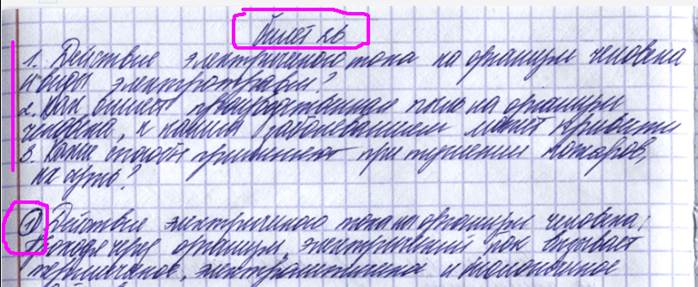 Билет 26
1. Действие электрического тока на организм человека
и виды электротравм?
2. Как влияет производственная пыль на организм
человека, к каким заболеваниям может привести
3. Какие способы применяют при тушении пожаров,
их суть?
1) Действие электрического тока на организм человека:
Проходя через организм, электрический ток вызывает
термическое, электролитическое и биологическое